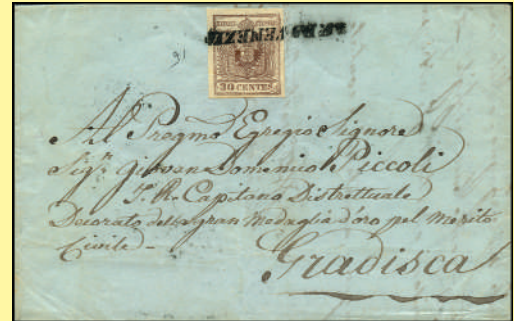 91
30 CENTES
Al Pregmo Egregio Signore
Sigr Giovan Domenico Piccoli
I. R. Capitano Distrettuale
Decorato della gran Medaglia d'oro pel Merito
Civile -
Gradisca